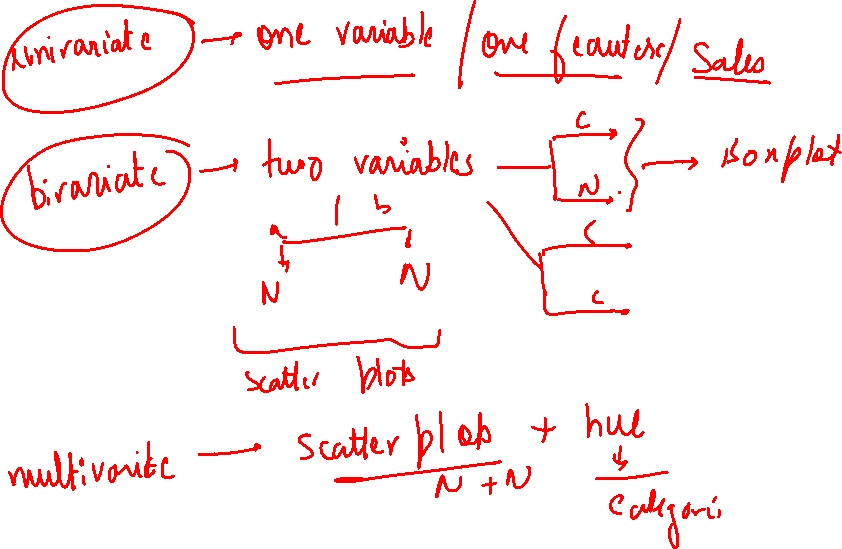 univariate → one variable / one feauter / Sales
bivariate → two variables C N → Boxplot
a b C
N N C
scatter plots
multivaritc → scatter plob + hue
N + N
Categori